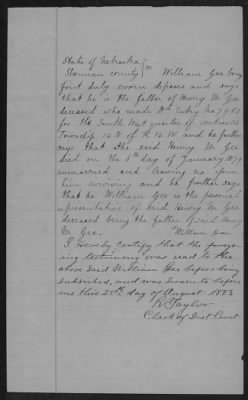 State of Nebraska
Sherman county } ss William Gee being
first duly sworn deposes and says
that he is the father of Henry M. Gee
deceased who made Hd Entry No 7952
for the South West quarter of section
Township 14 N of R 14 W and he further
says that the said Henry M. Gee
died on the 1st day of January 1879
unmarried and leaving no
him surviving and he further says
that he William Gee is the
representative of said Henry M. Gee
deceased being the father of said Henry
M. Gee. William Gee
I Hereby Certify that the forego-
ing testimony was read to the
above said William Gee before being
subscribed, and was sworn to before
me this 28th day of August 1883
R Taylor
Clerk of Dist Court